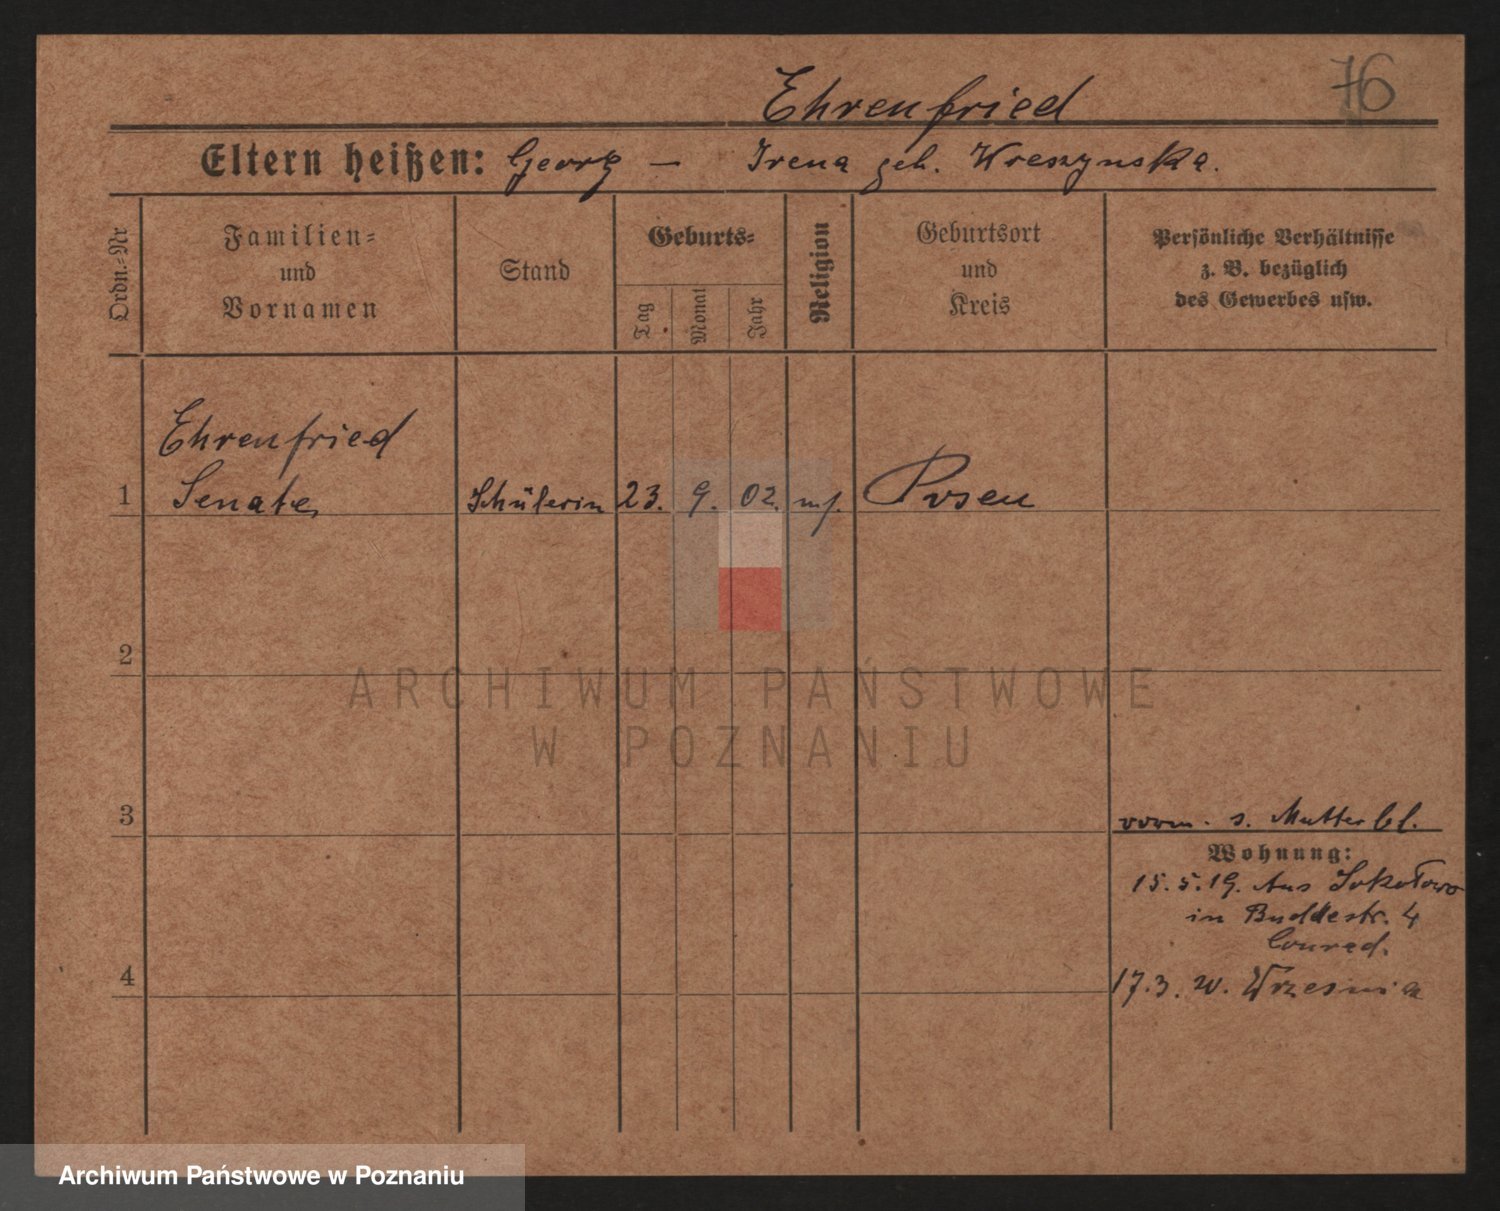 76
Ehrenfried
Eltern heißen: Georg — Irena geb. Wreszynska.
Ordn.=Nr
Familien=
und
Vornamen
Stand
Geburts=
Tag
Monat
Jahr
Religion
Geburtsort
und
Kreis
Persönliche Verhältnisse
z. B. bezüglich
des Gewerbes usw.
Ehrenfried
1 Renate Schülerin 23. 9. 02. Posen
2
ARCHIWUM PAŃSTWOWE
W POZNANIU
3
vorm. s. Mutter bl.
Wohnung:
15.5.19. Aus Sokołowo
in Buddestr. 4
Conrad.
4
17.3. w. Wrzesnia
Archiwum Państwowe w Poznaniu